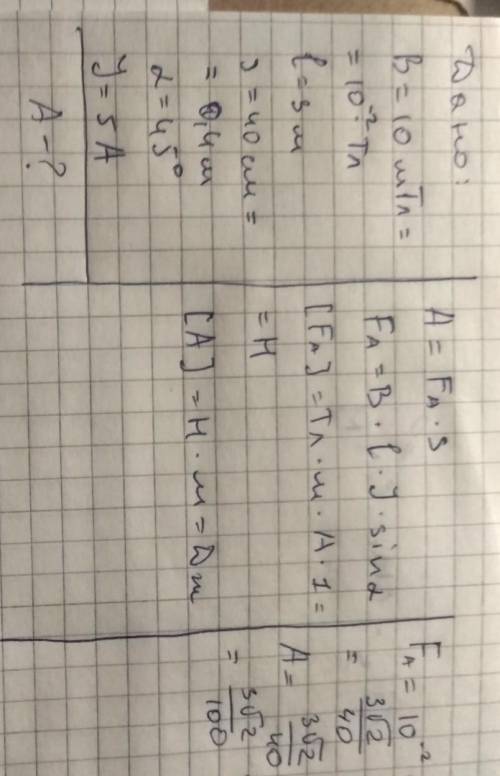 Дано:
B = 10 мТл =
= 10⁻² Тл
l = 3 м
s = 40 см =
= 0,4 м
α = 45°
У = 5 А
А - ?
A = F_A · S
F_A = B · l · J · sinα
[F_A] = Тл · м · А · 1 =
= Н
[A] = Н · м = Дж
F_A = 10⁻²
= 3√2/40
A = 3√2/40
= 3√2/100